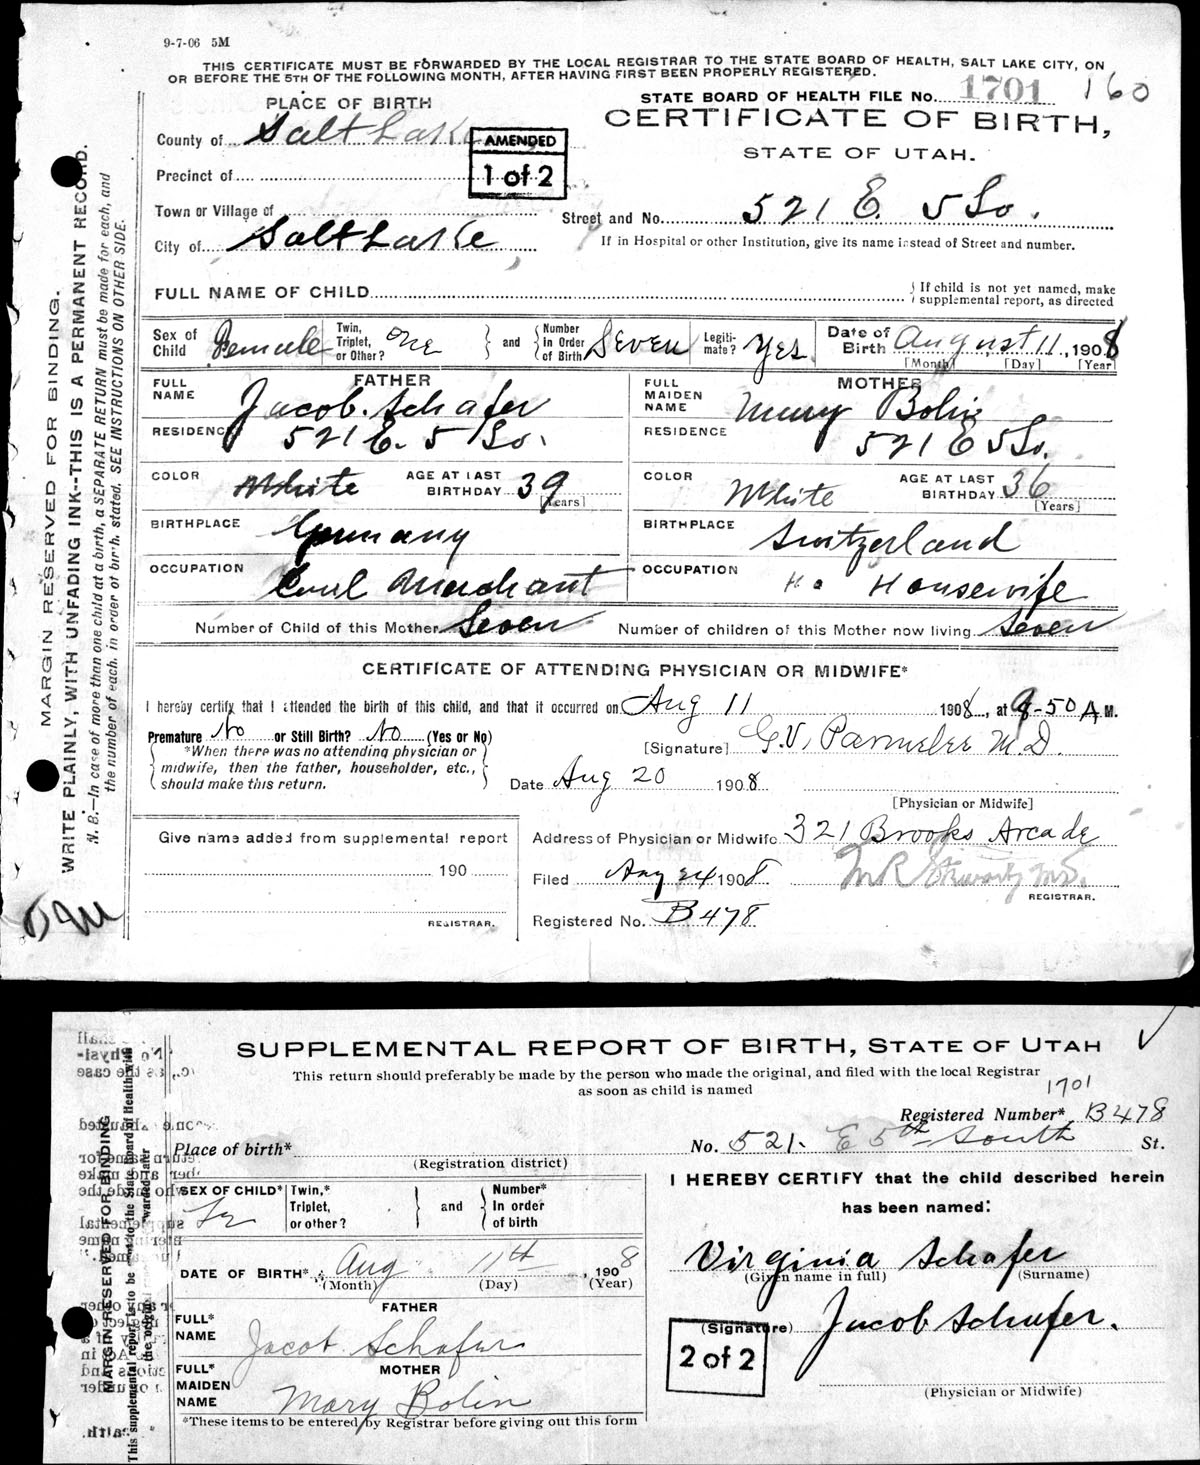 9-7-06 5M
THIS CERTIFICATE MUST BE FORWARDED BY THE LOCAL REGISTRAR TO THE STATE BOARD OF HEALTH, SALT LAKE CITY, ON
OR BEFORE THE 5TH OF THE FOLLOWING MONTH, AFTER HAVING FIRST BEEN PROPERLY REGISTERED.
PLACE OF BIRTH
STATE BOARD OF HEALTH FILE No. 1701 160
County of Salt Lake
AMENDED
1 of 2
CERTIFICATE OF BIRTH,
STATE OF UTAH.
Precinct of
Town or Village of
Street and No. 521 E. 5 So.
City of Salt Lake
If in Hospital or other Institution, give its name instead of Street and number.
FULL NAME OF CHILD
If child is not yet named, make
supplemental report, as directed
Sex of Child Female
Twin, Triplet, or Other? One
and
Number in Order of Birth Seven
Legiti-mate? Yes
Date of Birth August 11, 1908
[Month] [Day] [Year]
FATHER
FULL NAME Jacob Schafer
MOTHER
FULL MAIDEN NAME Mary Bolin
RESIDENCE 521 E. 5 So.
RESIDENCE 521 E 5 So.
COLOR White
AGE AT LAST BIRTHDAY 39
[Years]
COLOR White
AGE AT LAST BIRTHDAY 36
[Years]
BIRTHPLACE Germany
BIRTHPLACE Switzerland
OCCUPATION Coal Merchant
OCCUPATION Ho Housewife
Number of Child of this Mother Seven
Number of children of this Mother now living Seven
CERTIFICATE OF ATTENDING PHYSICIAN OR MIDWIFE*
I hereby certify that I attended the birth of this child, and that it occurred on Aug 11 1908, at 9-50 A M.
Premature No or Still Birth? No (Yes or No)
*When there was no attending physician or
midwife, then the father, householder, etc.,
should make this return.
[Signature] G. V. Parmelee M.D.
Date Aug 20 1908
[Physician or Midwife]
Give name added from supplemental report
190
REGISTRAR.
Address of Physician or Midwife 321 Brooks Arcade
Filed Aug 24 1908
REGISTRAR.
Registered No. B478
MARGIN RESERVED FOR BINDING.
WRITE PLAINLY, WITH UNFADING INK--THIS IS A PERMANENT RECORD.
N. B.—In case of more than one child at a birth, a SEPARATE RETURN must be made for each, and
the number of each, in order of birth, stated. SEE INSTRUCTIONS ON OTHER SIDE.
SUPPLEMENTAL REPORT OF BIRTH, STATE OF UTAH
This return should preferably be made by the person who made the original, and filed with the local Registrar
as soon as child is named
1701
Registered Number* B478
Place of birth*
(Registration district)
No. 521. E 5th South St.
SEX OF CHILD*
Twin,* Triplet, or other?
and
Number* In order of birth
DATE OF BIRTH* Aug 11th, 1908
(Month) (Day) (Year)
FATHER
FULL* NAME Jacob Schafer
MOTHER
FULL* MAIDEN NAME Mary Bolin
*These items to be entered by Registrar before giving out this form
I HEREBY CERTIFY that the child described herein
has been named:
Virginia Schafer
(Given name in full) (Surname)
(Signature) Jacob Schafer.
2 of 2
(Physician or Midwife)
MARGIN RESERVED FOR BINDING